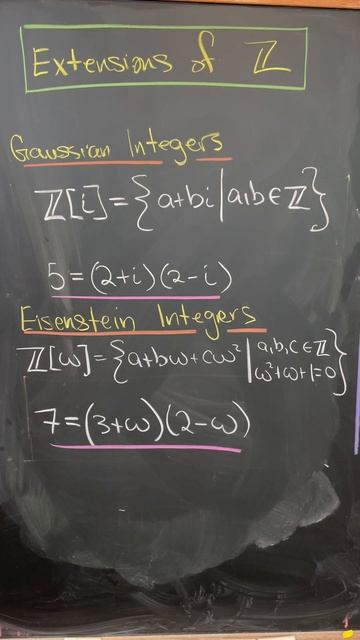 Extensions of ℤ
Gaussian Integers
ℤ[i] = {a+bi | a,b ∈ ℤ}
5 = (2+i)(2-i)
Eisenstein Integers
ℤ[ω] = {a+bω+cω² | a,b,c ∈ ℤ
ω²+ω+1=0}
7 = (3+ω)(2-ω)